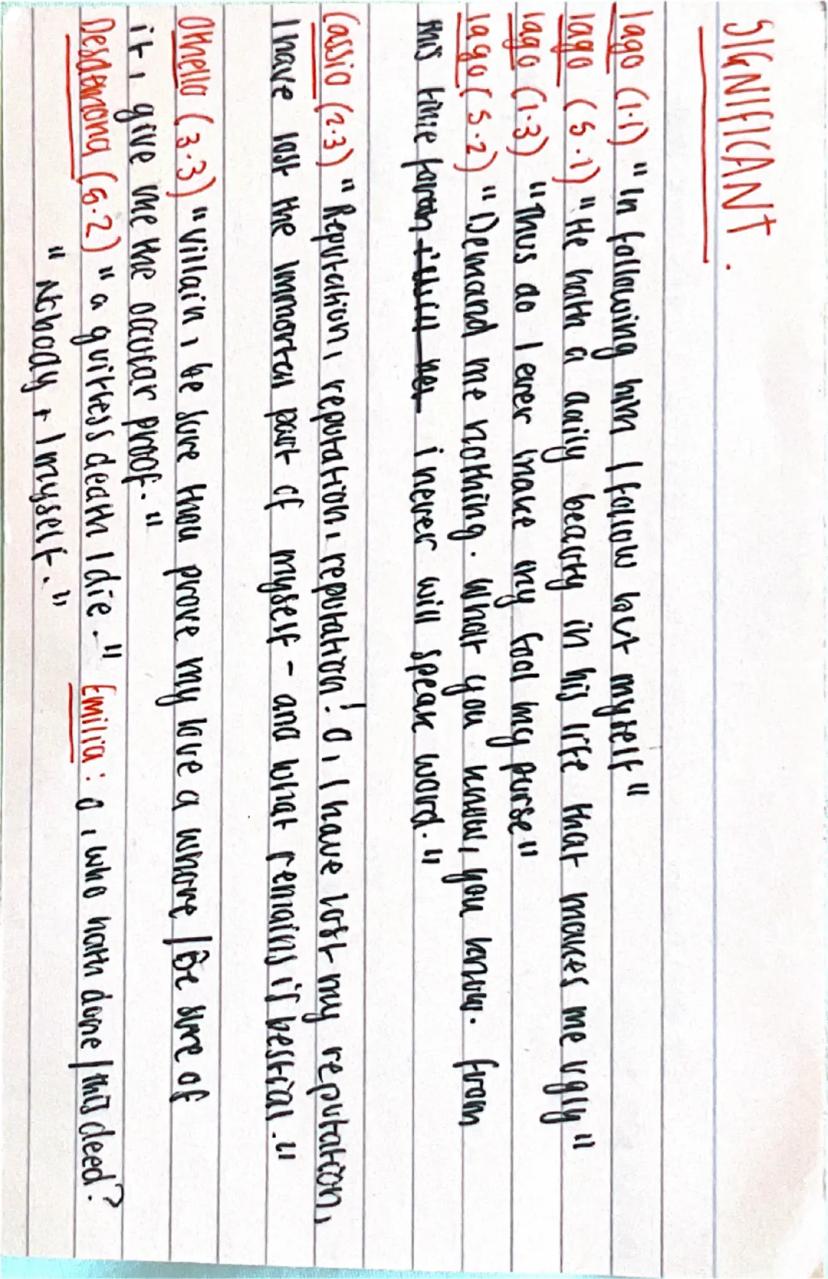 SIGNIFICANT.
Iago (1.1) "In following him I follow but myself"
Iago (5.1) "He hath a daily beauty in his life that makes me ugly"
Iago (1.3) "Thus do I ever make my fool my purse"
Iago (5.2) "Demand me nothing. What you know, you know. From
this time i never will speak word."
Cassio (2.3) "Reputation, reputation, reputation! O, I have lost my reputation,
I have lost the immortal part of myself - and what remains is bestial."
Othello (3.3) "Villain, be sure thou prove my love a whore / Be sure of
it, give me the occular proof."
Desdemona (5.2) "a guiltless death I die -" Emilia: O, who hath done / this deed?
"Nobody, I myself."